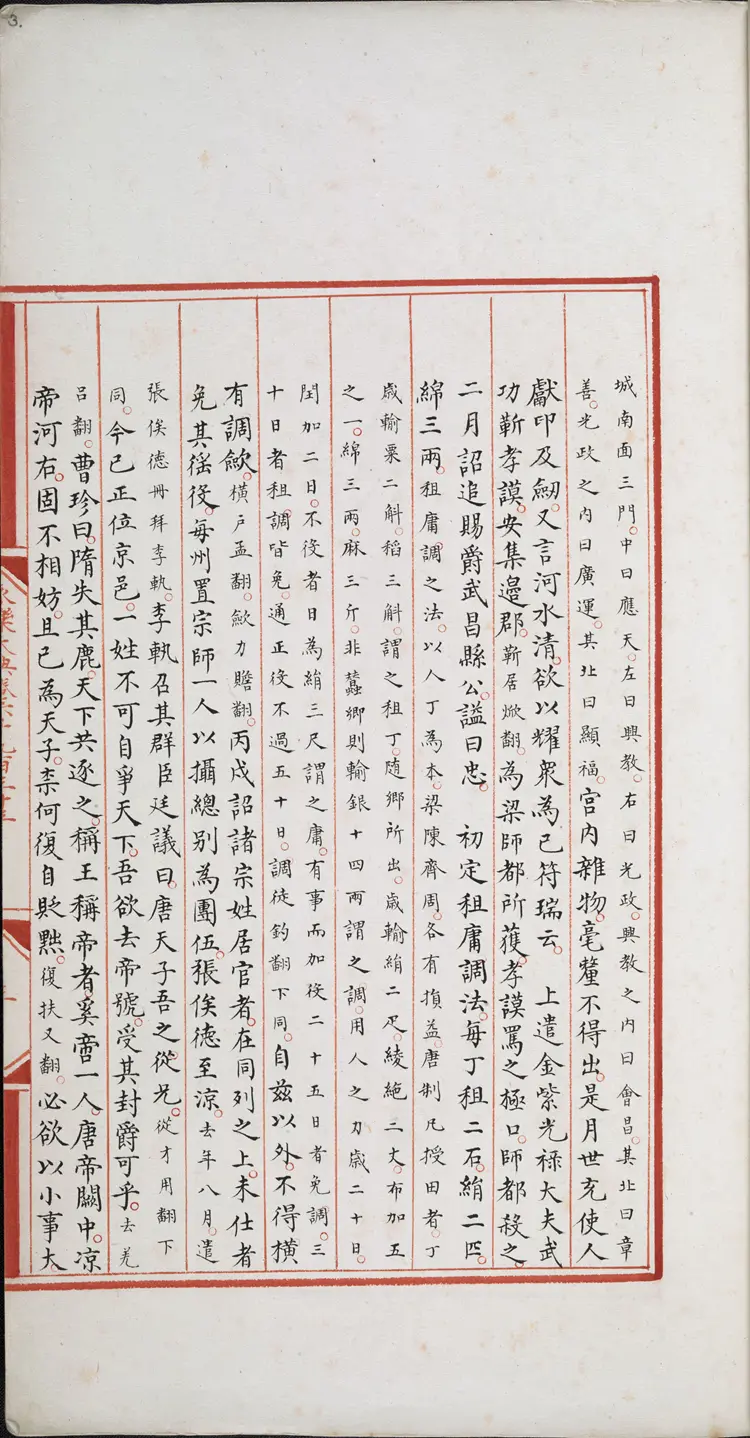 城南面三門。中曰應天。左曰興教。右曰光政。興教之内曰會昌。其北曰章
善。光政之内曰廣運。其北曰顯福。宮内雜物。毫釐不得出。是月世充使人
獻印及劒。又言河水清。欲以耀衆為已符瑞云。　上遣金紫光禄大夫武
功靳孝謨。安集邊郡。靳居焮翻。為梁師都所獲。孝謨罵之極口。師都殺之。
二月詔追賜爵武昌縣公。謚曰忠。　初定租庸調法。每丁租二石。絹二匹。
綿三兩。租庸調之法。以人丁為本。梁陳齊周。各有損益。唐制凡授田者。丁
嵗輸粟二斛。稻三斛。謂之租丁。随鄉所出。嵗輸絹二疋。綾絁二丈。布加五
之一。綿三兩。麻三斤。非蠶鄉則輸銀十四兩謂之調。用人之力嵗二十日。
閏加二日。不役者日為絹三尺謂之庸。有事而加役二十五日者免調。三
十日者租調皆免。通正役不過五十日。調徒釣翻下同。自兹以外。不得横
有調歛。横户孟翻。歛力贍翻。丙戌詔諸宗姓居官者。在同列之上。未仕者
免其徭役。每州置宗師一人以攝總别為團伍。張俟德至涼。去年八月。遣
張俟德冊拜李軌。李軌召其群臣廷議曰。唐天子吾之從兄。從才用翻下
同。今已正位京邑。一姓不可自爭天下。吾欲去帝號。受其封爵可乎。去羌
吕翻。曹珍曰。隋失其鹿。天下共逐之。稱王稱帝者。奚啻一人。唐帝闗中。凉
帝河右。固不相妨。且已為天子。柰何復自貶黜。復扶又翻。必欲以小事大